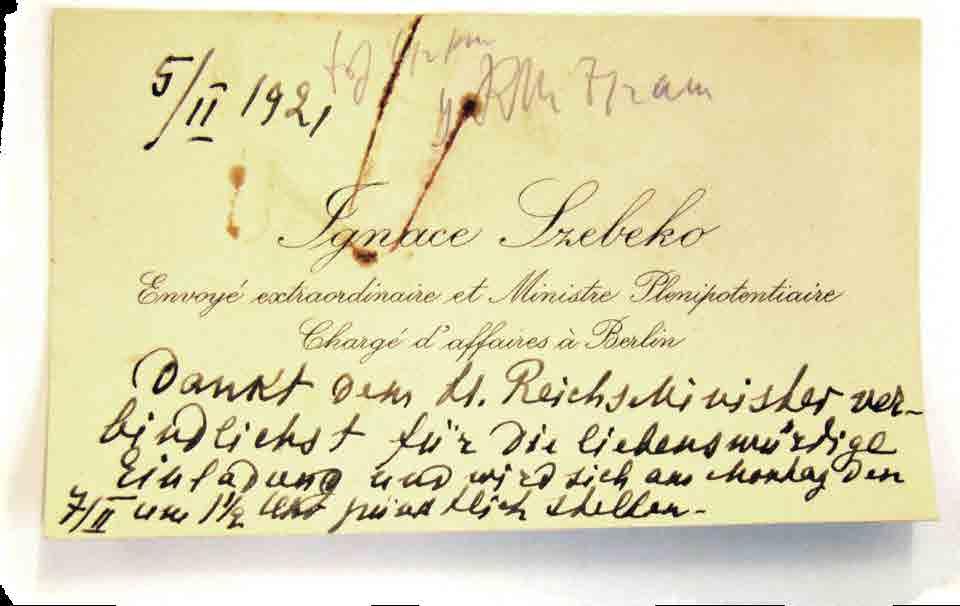 5/II 1921
Ignace Szebeko
Envoyé extraordinaire et Ministre Plenipotentiaire
Chargé d'affaires à Berlin
Dankt dem H. ReichsMinister ver-
bindlichst für die liebenswürdige
Einladung und wird sich am Montag den
7/II um 1½ Uhr pünktlich stellen.-